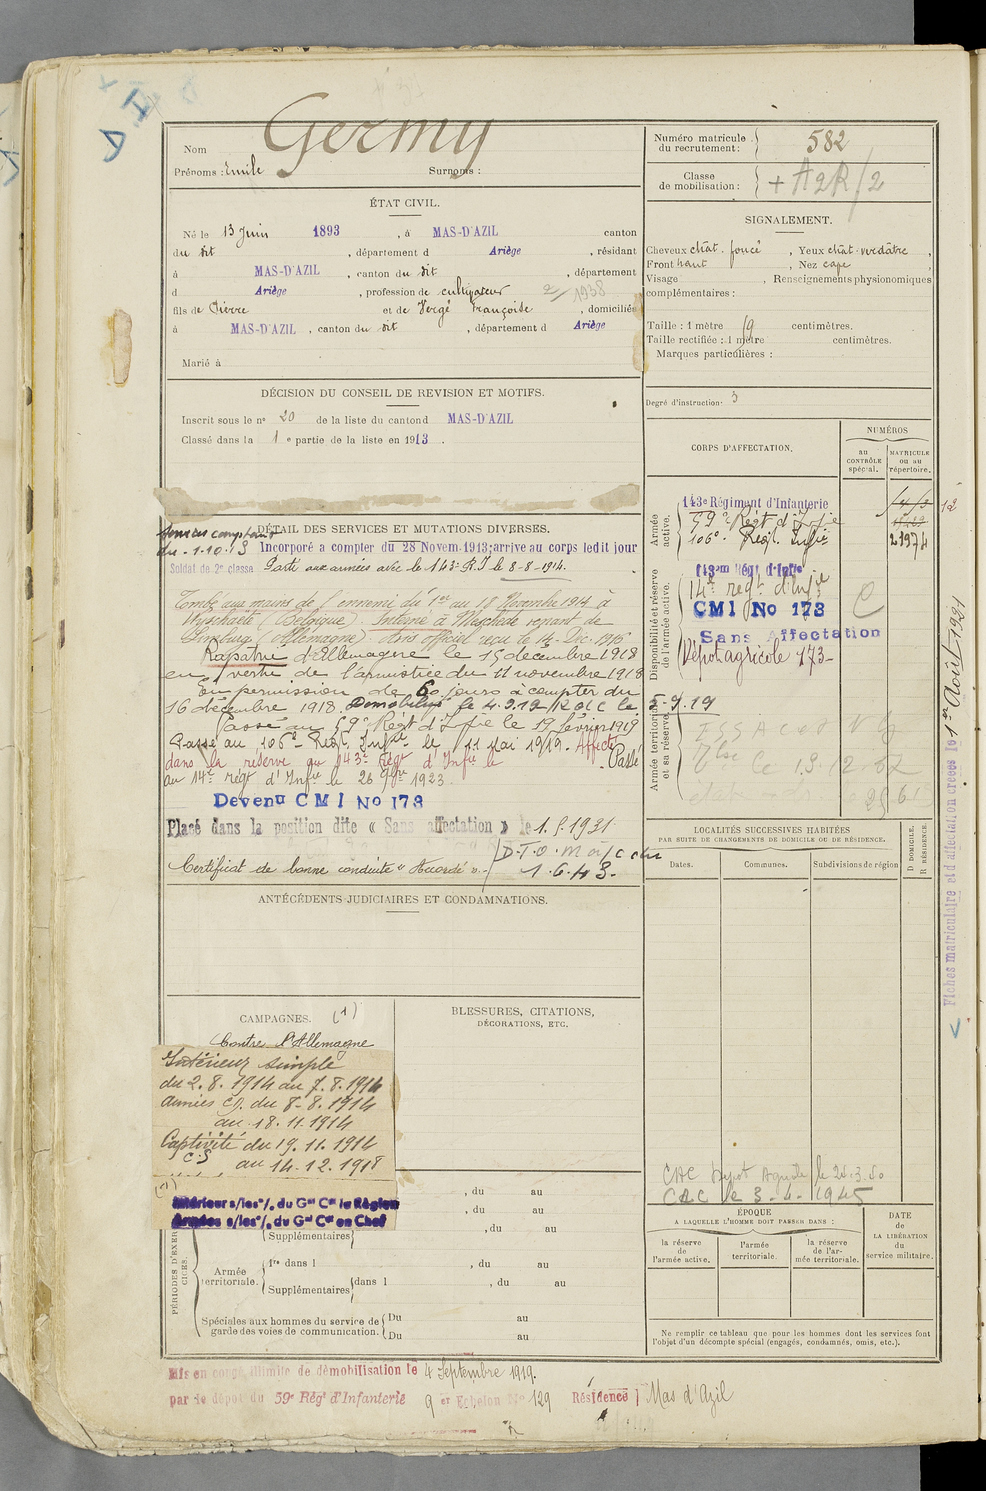 Nom Germy
Prénoms : Emile Surnoms :
ÉTAT CIVIL.
Né le 13 Juin 1893, à MAS-D'AZIL canton
du dit, département d Ariège, résidant
à MAS-D'AZIL, canton du dit, département
d Ariège, profession de cultivateur 2/1938
fils de Pierre et de Vergé Françoise, domiciliés
à MAS-D'AZIL, canton du dit, département d Ariège
Marié à
DÉCISION DU CONSEIL DE REVISION ET MOTIFS.
Inscrit sous le n° 20 de la liste du canton d MAS-D'AZIL
Classé dans la 1e partie de la liste en 1913.
DÉTAIL DES SERVICES ET MUTATIONS DIVERSES.
du 1.10.13 Incorporé a compter du 28 Novem. 1913; arrive au corps ledit jour
Soldat de 2e classe Parti aux armées avec le 143e R.I le 8-8-1914.
Tombé aux mains de l'ennemi du 1er au 18 Novembre 1914 à
Wyschaete (Belgique). Interné à Meschede venant de
Limburg (Allemagne) Avis officiel reçu le 14 Déc. 1916
Rapatrié d'Allemagne le 15 décembre 1918
en vertu de l'armistice du 11 novembre 1918
En permission de 60 jours à compter du
16 décembre 1918. Démobilisé le 4.9.19
Passé au 59e Régt d'Infie le 19 février 1919
Passé au 106e Régt Infie le 11 Mai 1919. Affecté
dans la réserve au 143e Régt d'Infie le . Passé
au 14e régt d'Infie le 26 9bre 1923.
Devenu CMI No 173
Placé dans la position dite « Sans affectation » le 1.5.1931
1.6.43.
Certificat de bonne conduite "Accordé".
ANTÉCÉDENTS JUDICIAIRES ET CONDAMNATIONS.
CAMPAGNES. (1)
Contre l'Allemagne
Intérieur simple
du 2.8.1914 au 7.8.1914
Armées CD. du 8-8.1914
au 18.11.1914
Captivité du 19.11.1914
C.S au 14.12.1918
(1)
Intérieur s/les o/. du Gal Ct la Région
Armées s/les o/. du Gal Ct en Chef
BLESSURES, CITATIONS,
DÉCORATIONS, ETC.
, du au
, du au
Supplémentaires , du au
PÉRIODES D'EXERCICES.
Armée territoriale.
1re dans l , du au
Supplémentaires dans l , du au
Spéciales aux hommes du service de garde des voies de communication.
Du au
Du au
Mis en congé illimité de démobilisation le 4 Septembre 1919.
par le dépôt du 59e Régt d'Infanterie 9er Echelon No 129 Résidence Mas d'Azil
Numéro matricule du recrutement : 582
Classe de mobilisation : + A2R/2
SIGNALEMENT.
Cheveux chât. foncé, Yeux chât. verdâtre,
Front haut, Nez cave,
Visage , Renseignements physionomiques
complémentaires :
Taille : 1 mètre 59 centimètres.
Taille rectifiée : 1 mètre centimètres.
Marques particulières :
Degré d'instruction : 3
CORPS D'AFFECTATION.
NUMÉROS
au CONTRÔLE spécial.
MATRICULE ou au répertoire.
Armée active.
143e Régiment d'Infanterie
59e Régt d'Infie
106e Régt Infie
21974
12
Disponibilité et réserve de l'armée active.
143me Régt d'Infie
14e régt d'Infie
CMI No 173
Sans Affectation
Dépôt agricole 173
Armée territoriale et sa réserve.
5-9.19
LOCALITÉS SUCCESSIVES HABITÉES
PAR SUITE DE CHANGEMENTS DE DOMICILE OU DE RÉSIDENCE.
Dates.
Communes.
Subdivisions de région.
D DOMICILE. R RÉSIDENCE.
CAC le 3-4-1945
ÉPOQUE
A LAQUELLE L'HOMME DOIT PASSER DANS :
la réserve de l'armée active.
l'armée territoriale.
la réserve de l'armée territoriale.
DATE de LA LIBÉRATION du service militaire.
Ne remplir ce tableau que pour les hommes dont les services font
l'objet d'un décompte spécial (engagés, condamnés, omis, etc.).
Fiches matriculaire et d'affectation créées le 1er Août 1921